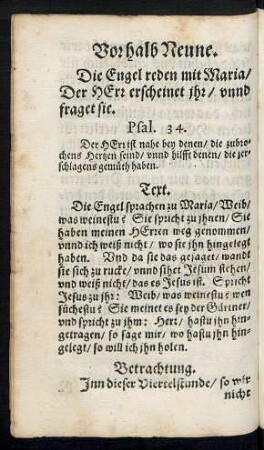 Vor halb Neune.
Die Engel reden mit Maria/
Der HErr erscheinet jhr/ vnnd
fraget sie.
Psal. 34.
Der HErr ist nahe bey denen/ die zubro-
chens Hertzen seind/ vnnd hilfft denen/ die zer-
schlagens gemüth haben.
Text.
Die Engel sprachen zu Maria/ Weib/
was weinestu? Sie spricht zu jhnen/ Sie
haben meinen HErren weg genommen/
vnnd ich weiß nicht/ wo sie jhn hingelegt
haben. Vnd da sie das gesaget/ wandt
sie sich zu rucke/ vnnd sihet Jesum stehen/
vnd weiß nicht/ das es Jesus ist. Spricht
Jesus zu jhr: Weib/ was weinestu? wen
süchestu? Sie meinet es sey der Gärtner/
vnd spricht zu jhm: Herr/ hastu jhn hin-
getragen/ so sage mir/ wo hastu jhn hin-
gelegt/ so will ich jhn holen.
Betrachtung.
Jnn dieser Viertelstunde/ so wir
nicht